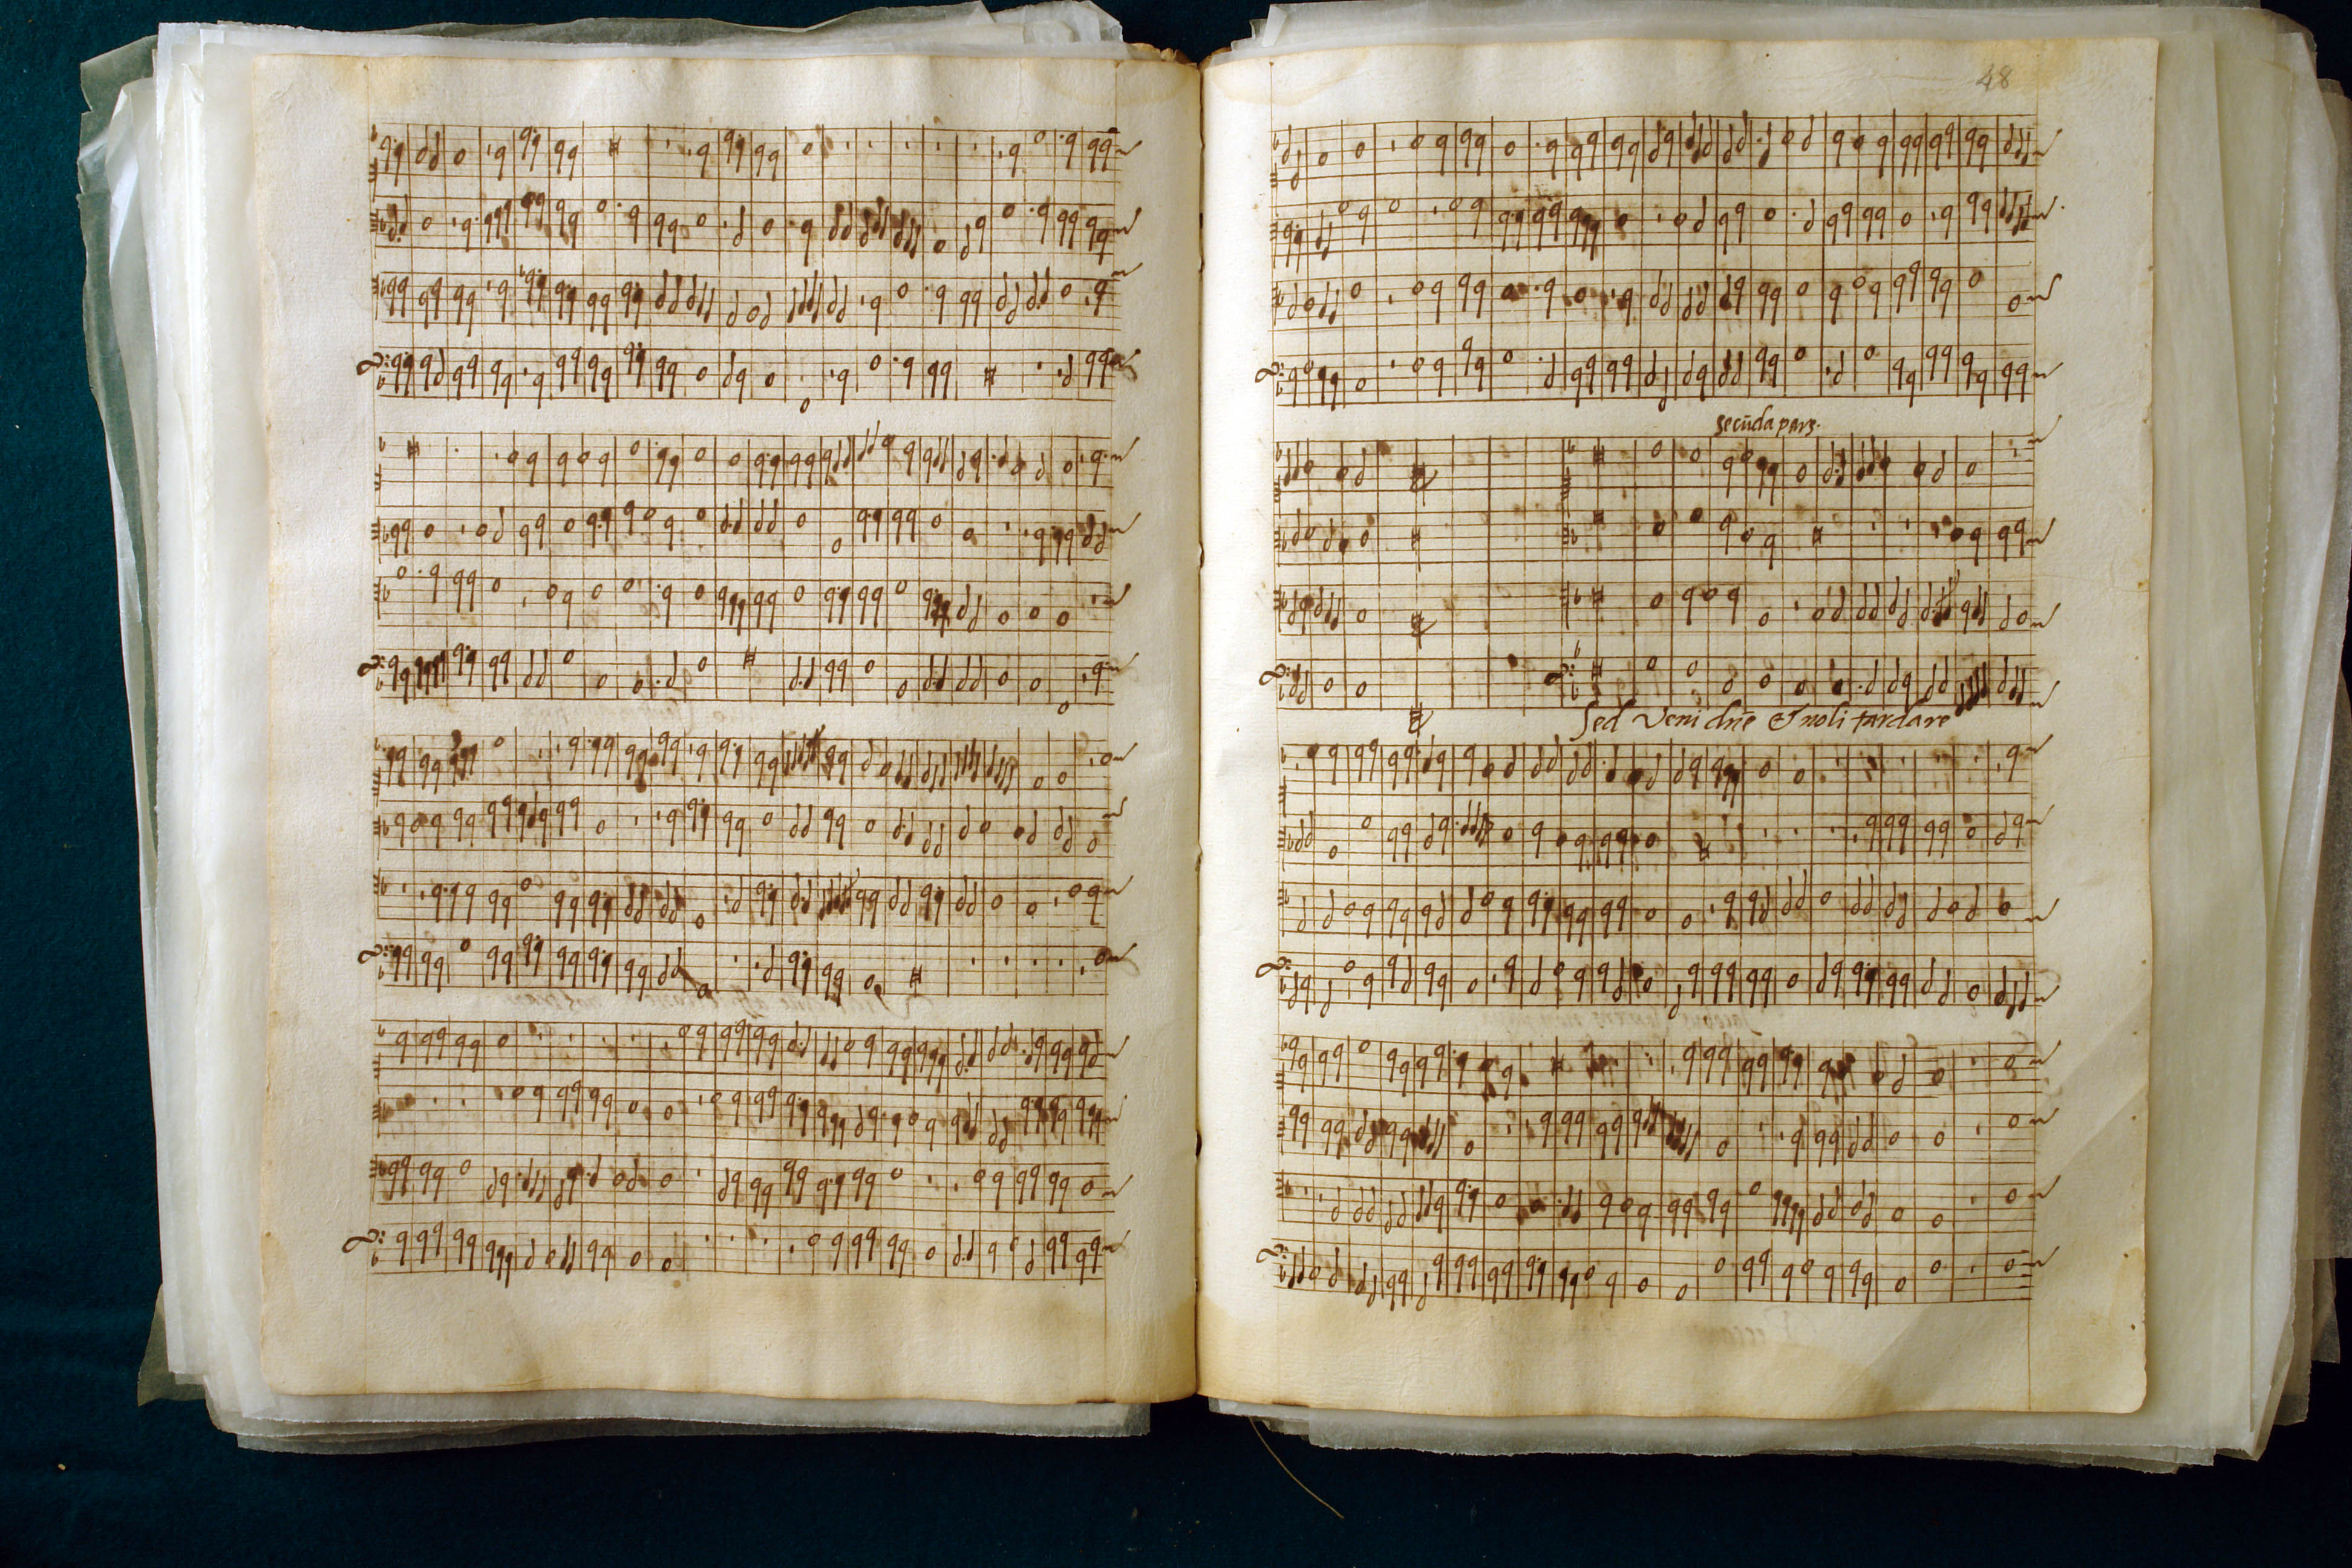 48
secūda pars.
Sed Veni dñe & noli tardare